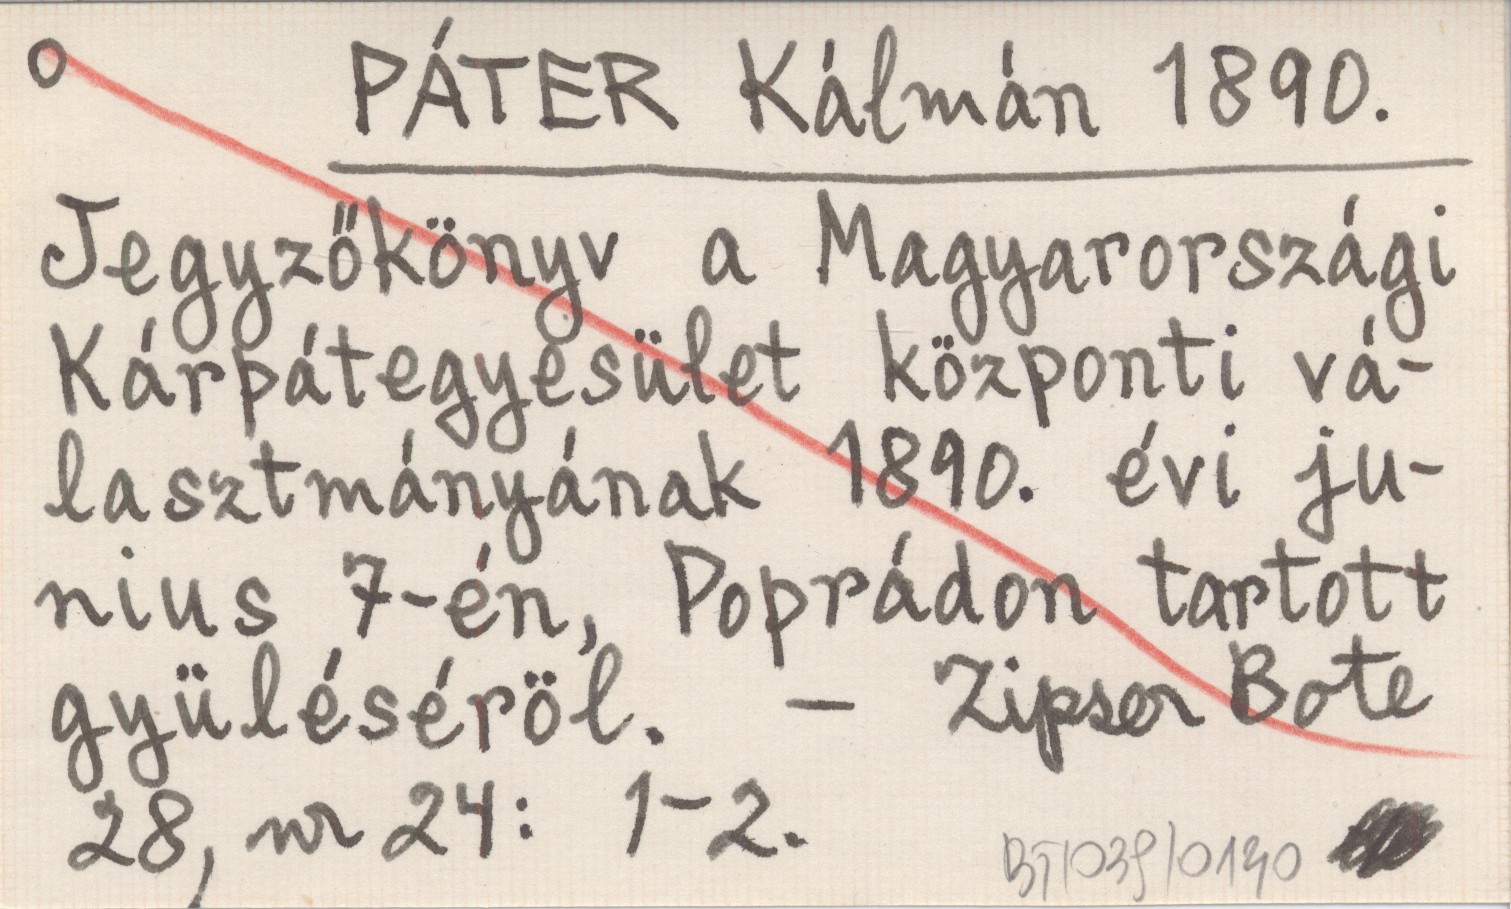 PÁTER Kálmán 1890.
Jegyzőkönyv a Magyarországi
Kárpátegyesület központi vá-
lasztmányának 1890. évi ju-
nius 7-én, Poprádon tartott
gyüléséröl. — Zipser Bote
28, nr 24: 1-2.